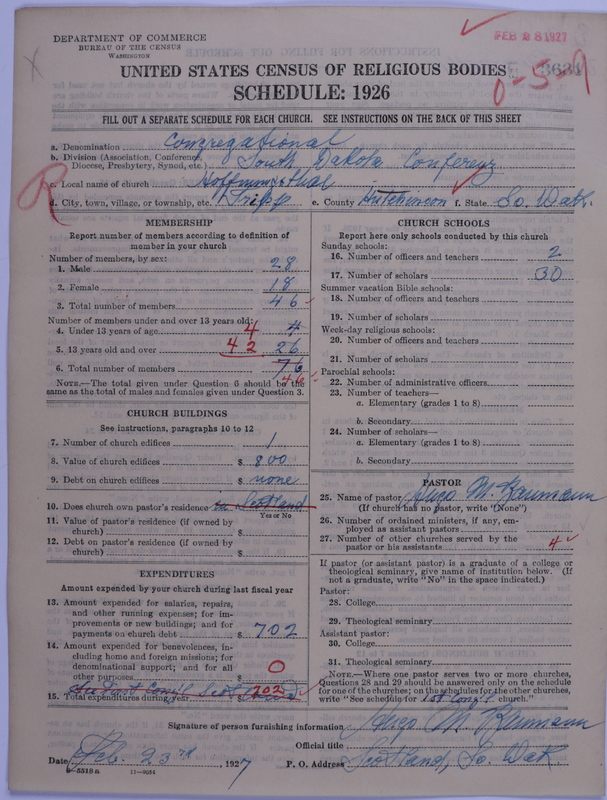 DEPARTMENT OF COMMERCE
BUREAU OF THE CENSUS
WASHINGTON
FEB 28 1927
UNITED STATES CENSUS OF RELIGIOUS BODIES
SCHEDULE: 1926
0-5-9
FILL OUT A SEPARATE SCHEDULE FOR EACH CHURCH. SEE INSTRUCTIONS ON THE BACK OF THIS SHEET
a. Denomination Congregational
b. Division (Association, Conference, Diocese, Presbytery, Synod, etc.) South Dakota Conference
R
c. Local name of church Hoffnungsthal
d. City, town, village, or township, etc. Tripp e. County Hutchinson f. State So. Dak.
MEMBERSHIP
Report number of members according to definition of
member in your church
Number of members, by sex:
1. Male 28
2. Female 18
3. Total number of members 46
Number of members under and over 13 years old:
4. Under 13 years of age 4 4
5. 13 years old and over 42 26
6. Total number of members 76
46
NOTE.—The total given under Question 6 should be the
same as the total of males and females given under Question 3.
CHURCH BUILDINGS
See instructions, paragraphs 10 to 12
7. Number of church edifices 1
8. Value of church edifices $ 800
9. Debt on church edifices $ none
10. Does church own pastor's residence in Scotland
Yes or No
11. Value of pastor's residence (if owned by
church) $
12. Debt on pastor's residence (if owned by
church) $
EXPENDITURES
Amount expended by your church during last fiscal year
13. Amount expended for salaries, repairs,
and other running expenses; for im-
provements or new buildings; and for
payments on church debt $ 702
14. Amount expended for benevolences, in-
cluding home and foreign missions; for
denominational support; and for all
other purposes $ 0
15. Total expenditures during year 702
CHURCH SCHOOLS
Report here only schools conducted by this church
Sunday schools:
16. Number of officers and teachers 2
17. Number of scholars 30
Summer vacation Bible schools:
18. Number of officers and teachers
19. Number of scholars
Week-day religious schools:
20. Number of officers and teachers
21. Number of scholars
Parochial schools:
22. Number of administrative officers
23. Number of teachers—
a. Elementary (grades 1 to 8)
b. Secondary
24. Number of scholars—
a. Elementary (grades 1 to 8)
b. Secondary
PASTOR
25. Name of pastor Hugo M. Baumann
(If church has no pastor, write "None")
26. Number of ordained ministers, if any, em-
ployed as assistant pastors
27. Number of other churches served by the
pastor or his assistants 4
If pastor (or assistant pastor) is a graduate of a college or
theological seminary, give name of institution below. (If
not a graduate, write "No" in the space indicated.)
Pastor:
28. College
29. Theological seminary
Assistant pastor:
30. College
31. Theological seminary
NOTE.—Where one pastor serves two or more churches,
Questions 28 and 29 should be answered only on the schedule
for one of the churches; on the schedules for the other churches,
write "See schedule for 1st Cong'l church."
Signature of person furnishing information Hugo M. Baumann
Official title
Date Feb. 23rd, 1927 P. O. Address Scotland, So. Dak
8—5518 a 11—9054